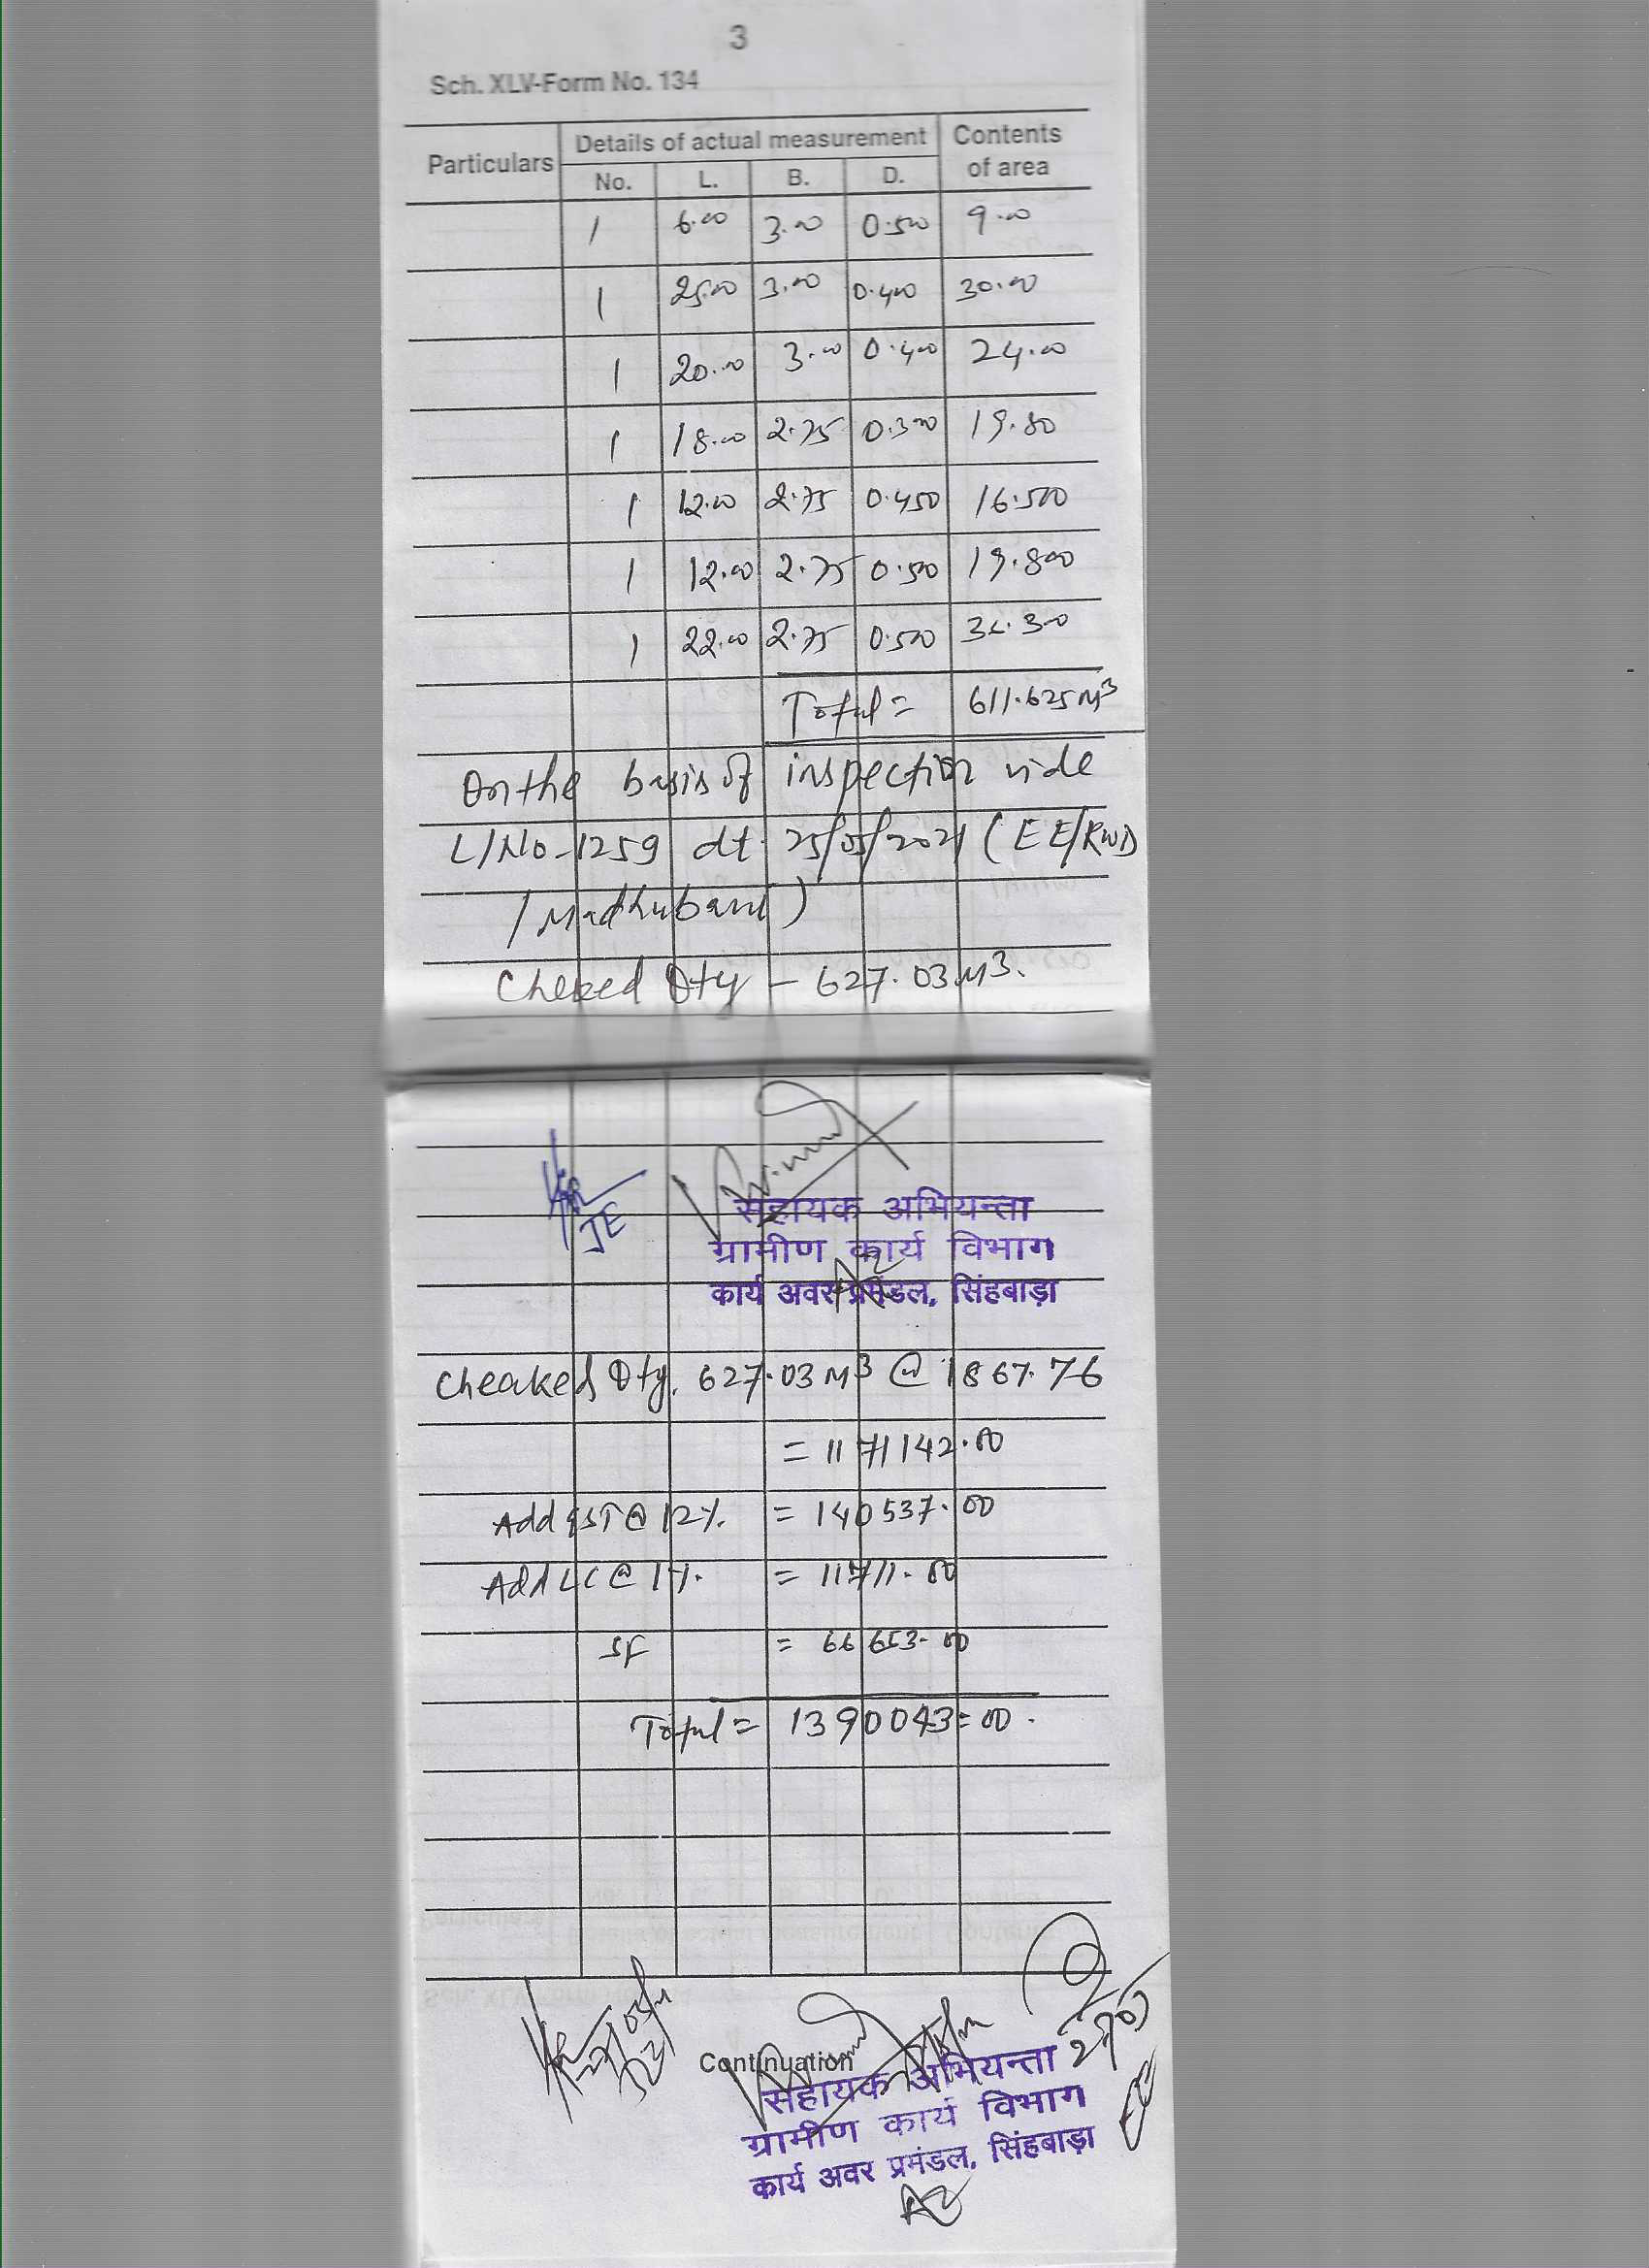 3
Sch. XLV-Form No. 134
Particulars Details of actual measurement Contents of area
No. L. B. D.
1 6.00 3.00 0.500 9.00
1 25.00 3.00 0.400 30.00
1 20.00 3.00 0.400 24.00
1 18.00 2.75 0.300 19.80
1 12.00 2.75 0.450 16.500
1 12.00 2.75 0.500 19.800
1 22.00 2.75 0.500 36.300
Total = 611.625 M3
On the basis of inspection vide
L/No-1259 dt 25/05/2021 (EE/RWD
/Madhubani)
Cheked Qty - 627.03 M3.
JE
सहायक अभियन्ता
ग्रामीण कार्य विभाग
कार्य अवर प्रमंडल, सिंहबाड़ा
Cheaked Qty. 627.03 M3 @ 1867.76
= 1171142.00
Add GST @ 12%. = 140537.00
Add LC @ 1%. = 11711.00
SF = 66653.00
Total = 1390043=00.
Continuation
सहायक अभियन्ता
ग्रामीण कार्य विभाग
कार्य अवर प्रमंडल, सिंहबाड़ा